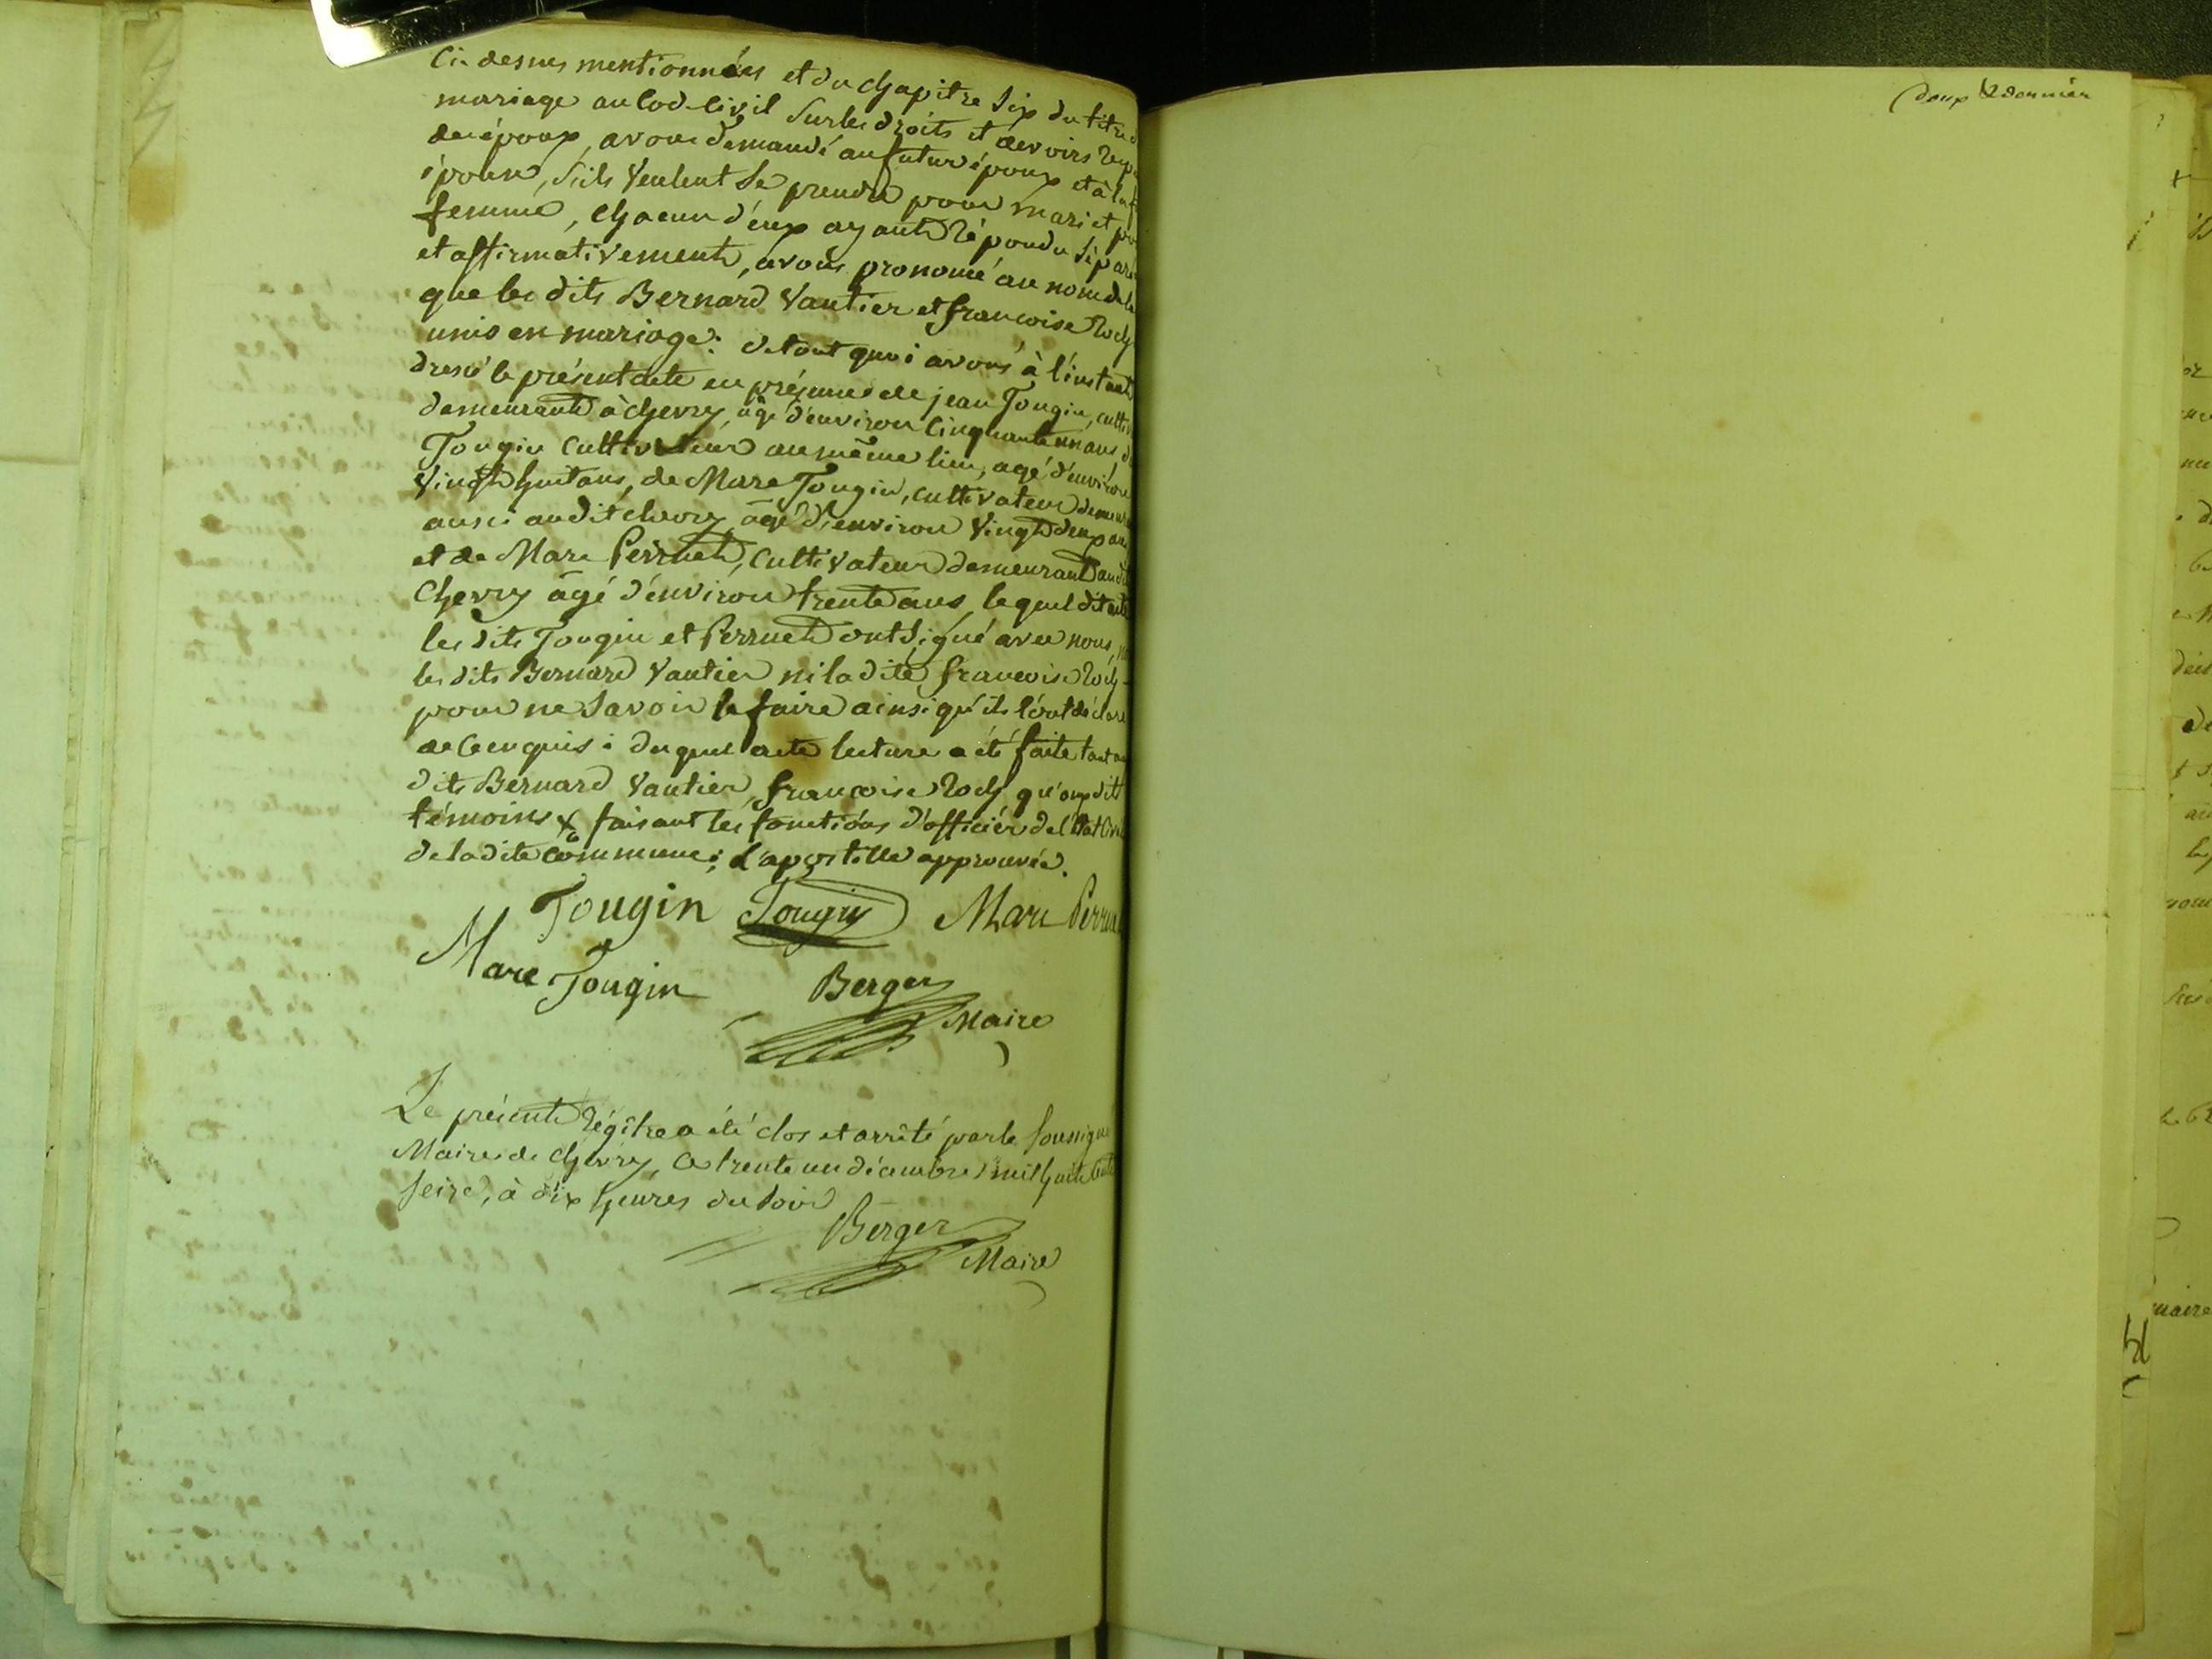 Ci-dessus mentionnées et du chapitre Six du titre d
mariage au Cod-Civil Sur les droits et devoirs resp
des époux, avons demandé au futur époux et à la f
épouse, S'ils Veulent Se prendre pour mari et po
femme, chacun d'eux ayant répondu Séparé
et affirmativement, avons prononcé au nom de la
que les dits Bernard Vautier et françoise Roch
unis en mariage: de tout quoi avons à l'instant
dressé le présent acte en présence de jean Tougin, cultiv
demeurant à chevry, âgé d'environ Cinquante un ans d
Tougin Cultivateur au même lieu, agé d'environ
Vingt huit ans, de Marc Tougin, cultivateur demeur
aussi au dit chevry, âgé d'environ Vingt deux ans
et de Marc Perruet, Cultivateur demeurant au dit
Chevry âgé d'environ trente ans, lequel dit
les dits Tougin et Perruet ont Signé avec nous,
les dits Bernard Vautier ni la dite françoise Roch
pour ne Savoir le faire ainsi qu'ils l'ont déclaré
de Ce enquis: du quel acte lecture a été faite tant au
dits Bernard Vautier, françoise Roch qu'aux dits
témoins faisant les fonctions d'officier de l'État Civil
de la dite Commune; L'apostille approuvée.
Tougin Tougin Marc Perruet
Marc Tougin Berger
Maire
Le présent régître a été clos et arrêté par le Soussigné
Maire de Chevry, Ce trente un décembre mil huit Cent
Seize, à dix heures du Soir
Berger
Maire
deux & dernier
maire